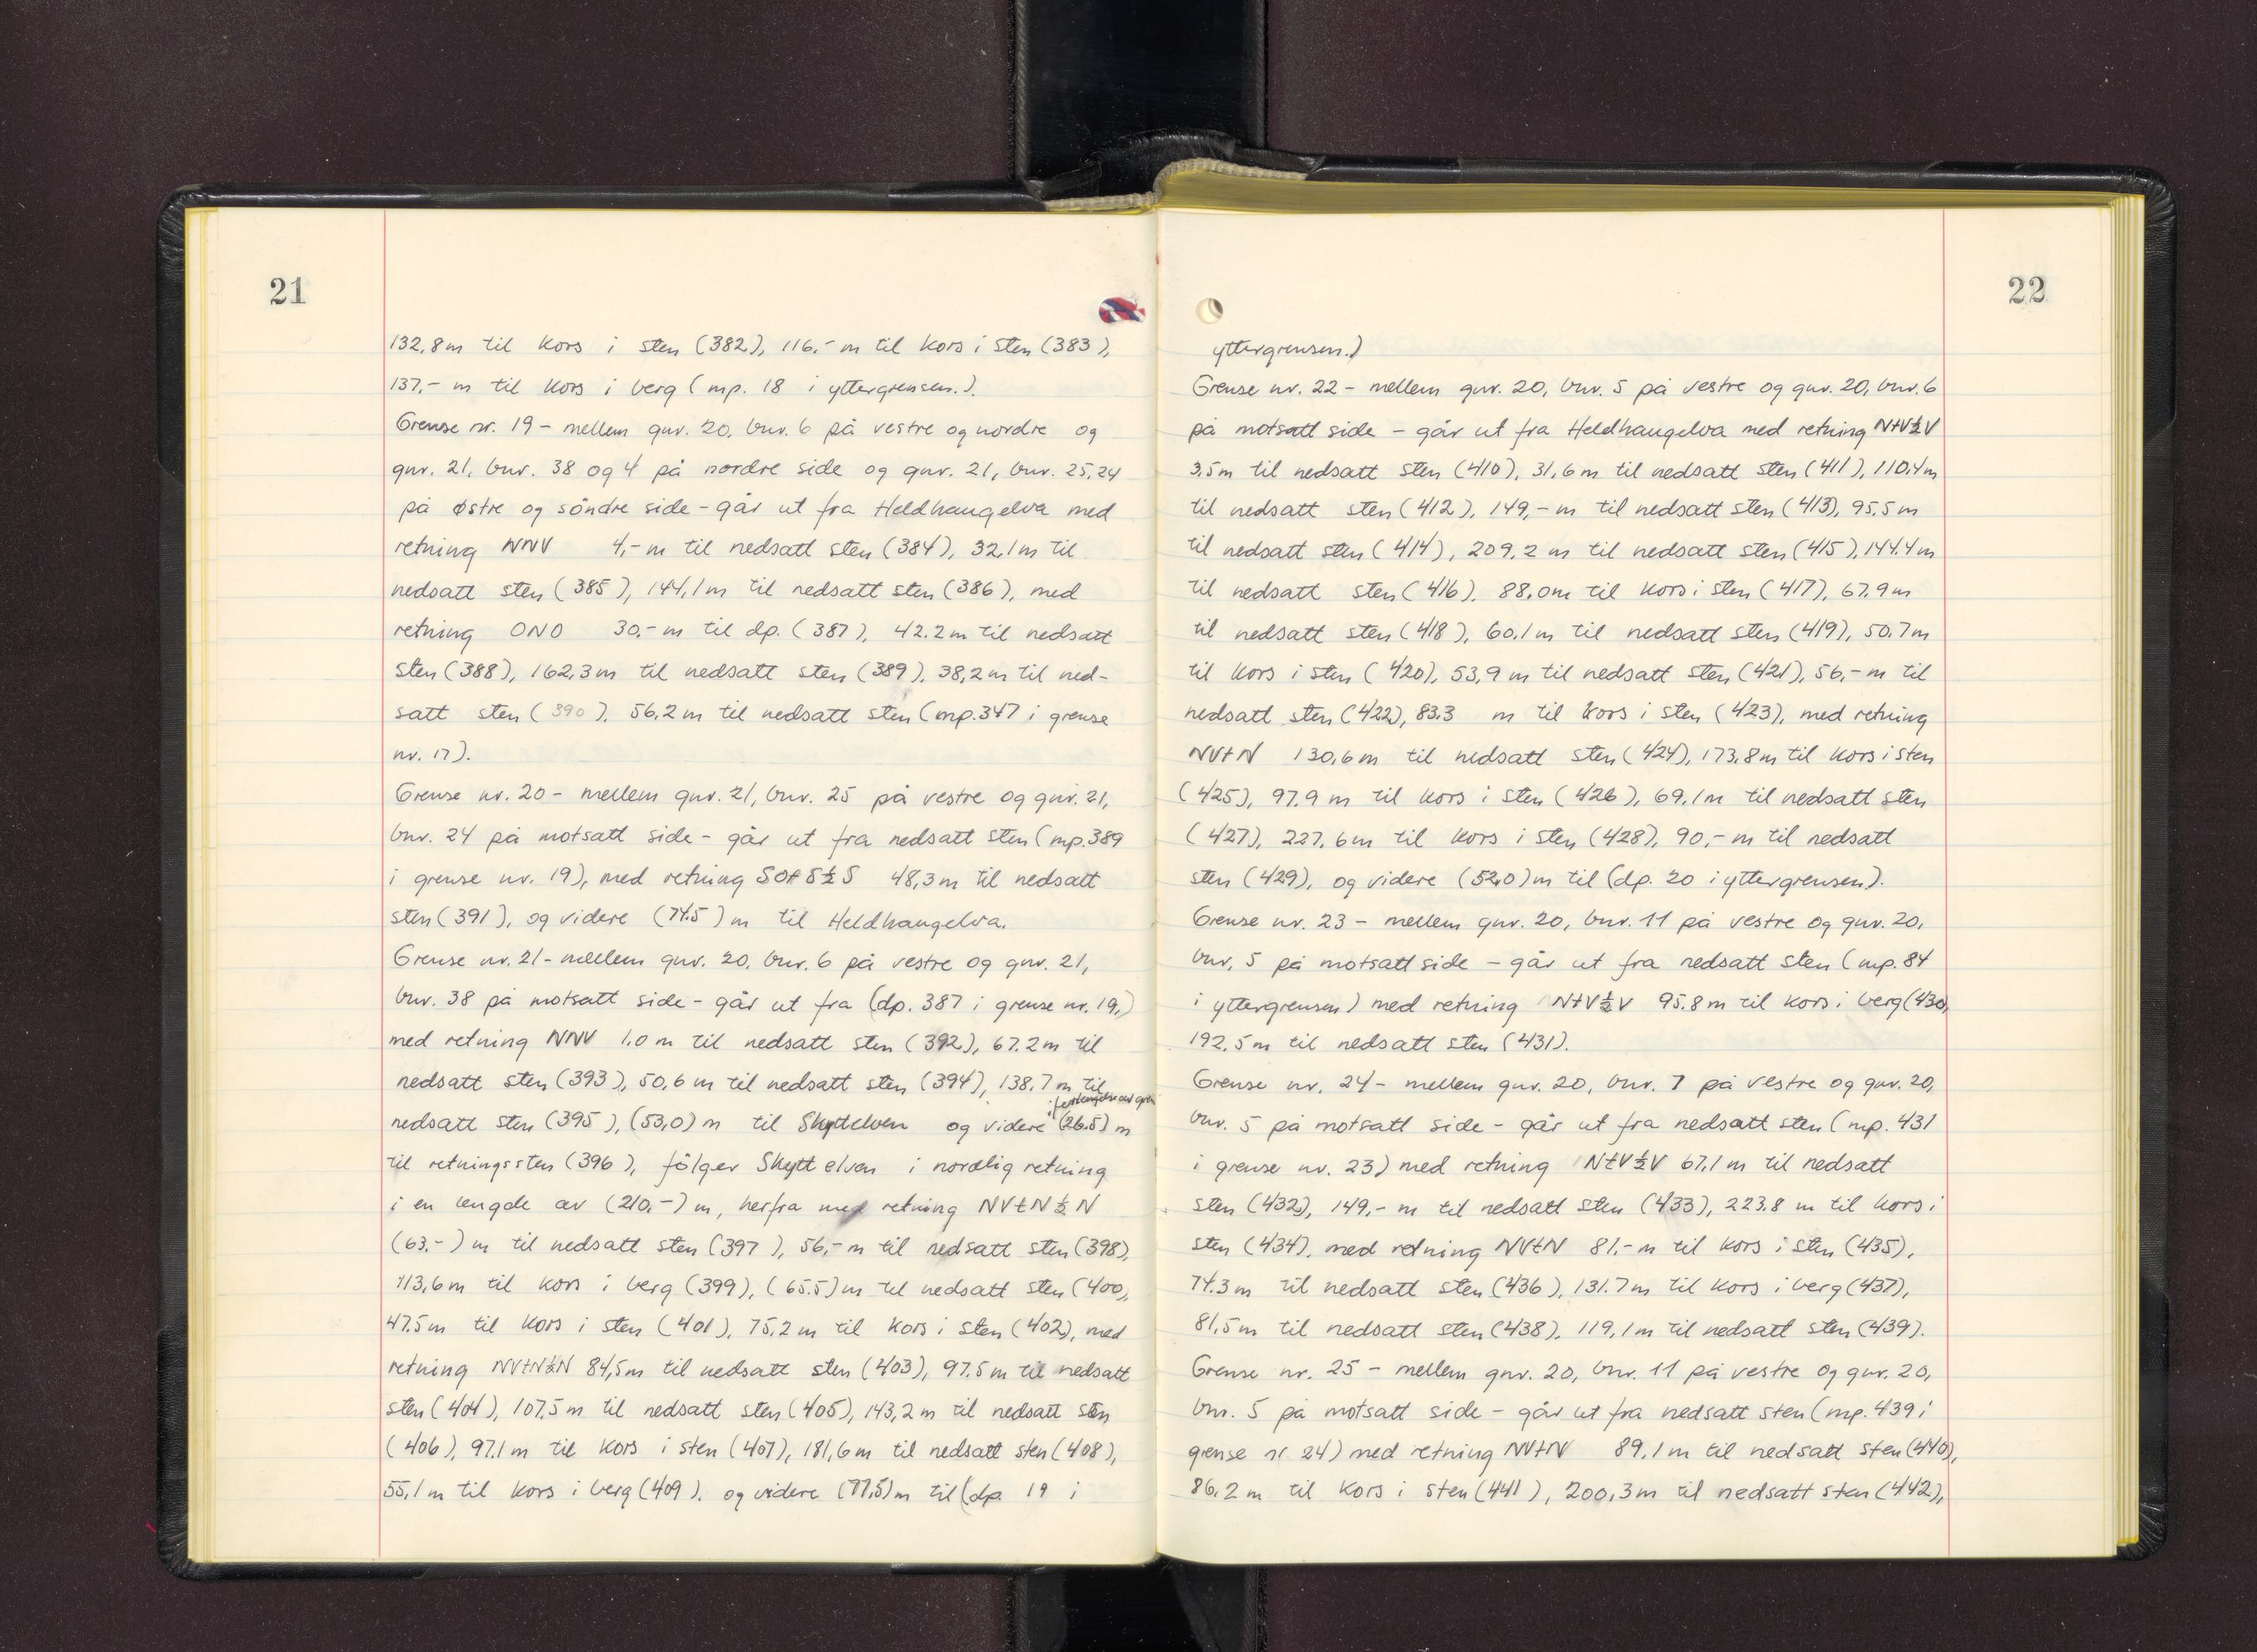 21
132,8m til kors i sten (382), 116,- m til kors i sten (383),
137,- m til kors i berg (mp. 18 i yttergrensen.).
Grense nr. 19 - mellem gnr. 20, bnr. 6 på vestre og nordre og
gnr. 21, bnr. 38 og 4 på nordre side og gnr. 21, bnr. 25,24
på østre og söndre side - går ut fra Heldhaugelva med
retning NNV 4,- m til nedsatt sten (384), 32,1m til
nedsatt sten (385), 144,1m til nedsatt sten (386), med
retning ONO 30,- m til dp. (387), 42.2m til nedsatt
sten (388), 162,3m til nedsatt sten (389), 38,2m til ned-
satt sten (390), 56,2m til nedsatt sten (mp.347 i grense
nr. 17).
Grense nr. 20 - mellem gnr. 21, bnr. 25 på vestre og gnr. 21,
bnr. 24 på motsatt side - går ut fra nedsatt sten (mp.389
i grense nr. 19), med retning SOtS½S 48,3m til nedsatt
sten (391), og videre (74.5) m til Heldhaugelva.
Grense nr. 21 - mellem gnr. 20, bnr. 6 på vestre og gnr. 21,
bnr. 38 på motsatt side - går ut fra (dp. 387 i grense nr. 19,)
med retning NNV 1.0 m til nedsatt sten (392), 67.2m til
nedsatt sten (393), 50,6 m til nedsatt sten (394), 138,7 m til
i forlengelse av
nedsatt sten (395), (53,0) m til Skyttelven og videre (26.5) m
til retningssten (396), fölger Skyttelven i nordlig retning
i en lengde av (210,-) m, herfra med retning NVtN½N
(63,-) m til nedsatt sten (397), 56,- m til nedsatt sten (398),
113,6m til kors i berg (399), (65.5) m til nedsatt sten (400),
47.5m til kors i sten (401), 75,2m til kors i sten (402), med
retning NVtN½N 84,5m til nedsatt sten (403), 97.5m til nedsatt
sten (404), 107,5m til nedsatt sten (405), 143,2m til nedsatt sten
(406), 97.1m til kors i sten (407), 181,6m til nedsatt sten (408),
55,1m til kors i berg (409), og videre (77,5)m til (dp. 19 i
22
yttergrensen.)
Grense nr. 22 - mellem gnr. 20, bnr. 5 på vestre og gnr. 20, bnr. 6
på motsatt side - går ut fra Heldhaugelva med retning NtV½V
3,5m til nedsatt sten (410), 31,6m til nedsatt sten (411), 110,4m
til nedsatt sten (412), 149,- m til nedsatt sten (413), 95,5m
til nedsatt sten (414), 209,2m til nedsatt sten (415), 144.4m
til nedsatt sten (416), 88,0m til kors i sten (417), 67,9m
til nedsatt sten (418), 60,1m til nedsatt sten (419), 50,7m
til kors i sten (420), 53,9m til nedsatt sten (421), 56,- m til
nedsatt sten (422), 83.3 m til kors i sten (423), med retning
NVtN 130,6m til nedsatt sten (424), 173,8m til kors i sten
(425), 97.9 m til kors i sten (426), 69,1m til nedsatt sten
(427), 227,6m til kors i sten (428), 90,- m til nedsatt
sten (429), og videre (52,0)m til (dp. 20 i yttergrensen).
Grense nr. 23 - mellem gnr. 20, bnr. 11 på vestre og gnr. 20,
bnr. 5 på motsatt side - går ut fra nedsatt sten (mp. 84
i yttergrensen) med retning NtV½V 95.8m til kors i berg (430),
192,5m til nedsatt sten (431).
Grense nr. 24 - mellem gnr. 20, bnr. 7 på vestre og gnr. 20,
bnr. 5 på motsatt side - går ut fra nedsatt sten (mp. 431
i grense nr. 23) med retning NtV½V 67,1m til nedsatt
sten (432), 149,- m til nedsatt sten (433), 223.8 m til kors i
sten (434), med retning NVtN 81,- m til kors i sten (435),
74.3m til nedsatt sten (436), 131.7m til kors i berg (437),
81,5m til nedsatt sten (438), 119,1m til nedsatt sten (439).
Grense nr. 25 - mellem gnr. 20, bnr. 11 på vestre og gnr. 20,
bnr. 5 på motsatt side - går ut fra nedsatt sten (mp. 439 i
grense nr. 24) med retning NVtN 89,1m til nedsatt sten (440),
86,2m til kors i sten (441), 200,3m til nedsatt sten (442),